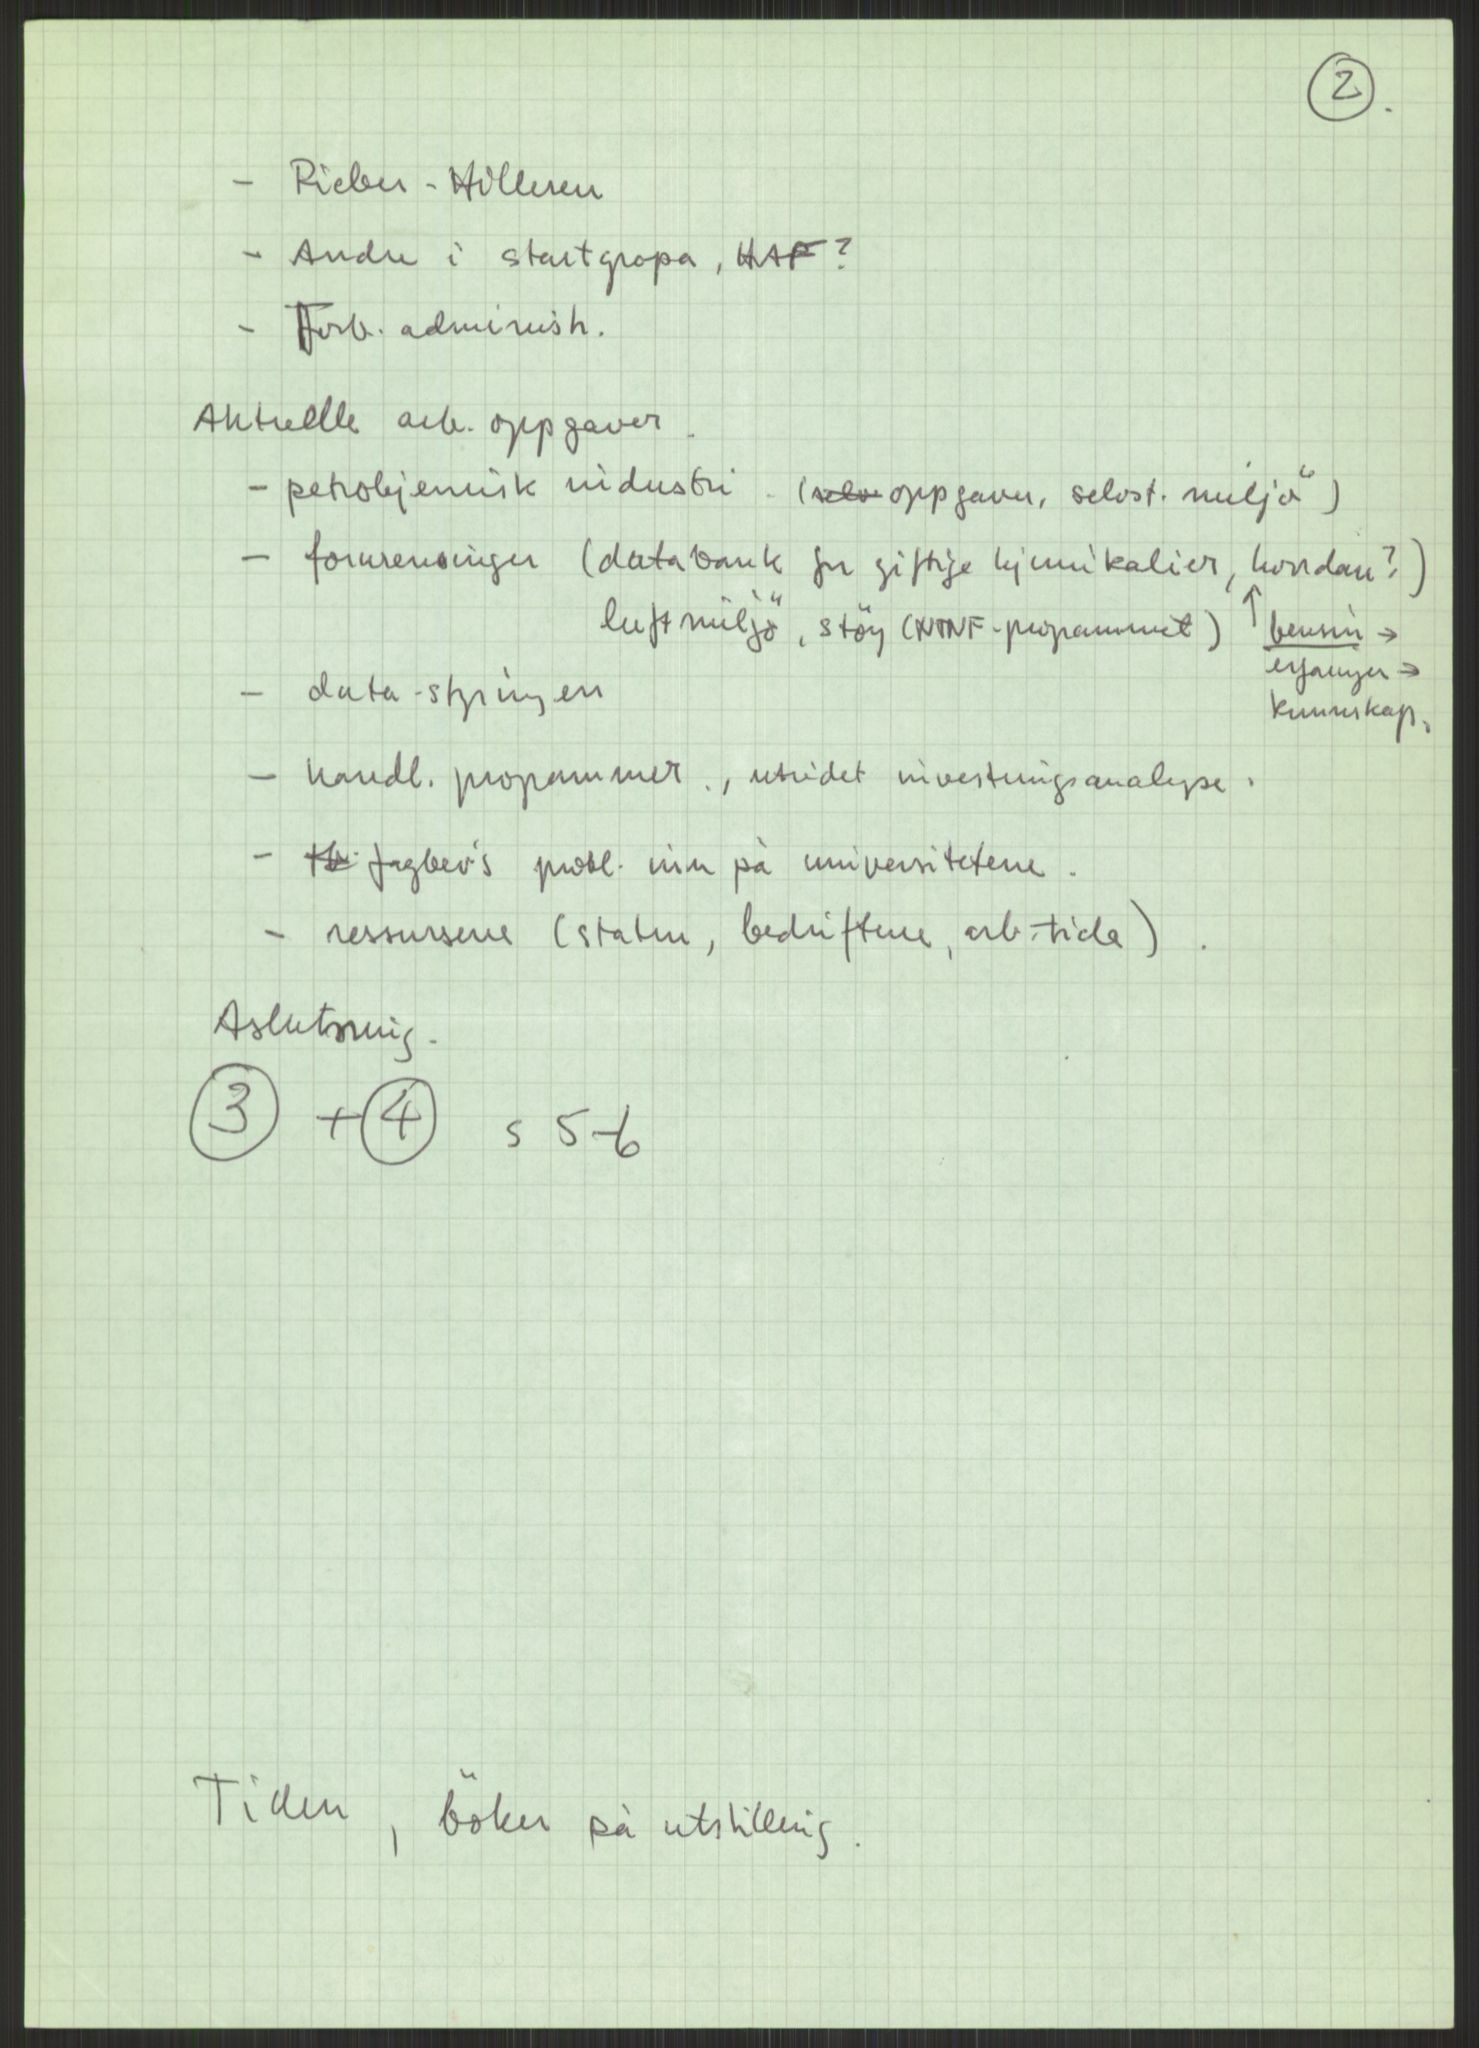 2.
- Rieber - Hilleren
- Andre i startgropa, HAF?
- Forb. administr.
Aktuelle arb. oppgaver.
- petrokjemisk industri. (oppgaver, selvst. miljö)
- forurensinger (databank for giftige kjemikalier, hvordan?)
luftmiljö, stöy (NTNF-programmet) ↑ bensin →
erfaringer →
kunnskap.
- data-styringen
- handl. programmer., utvidet investeringsanalyse.
- fagbev's probl. inn på universitetene.
- ressursene (staten, bedriftene, arb-tida).
Aslutning.
3 + 4 s 5-6
Tiden, böker på utstilling.